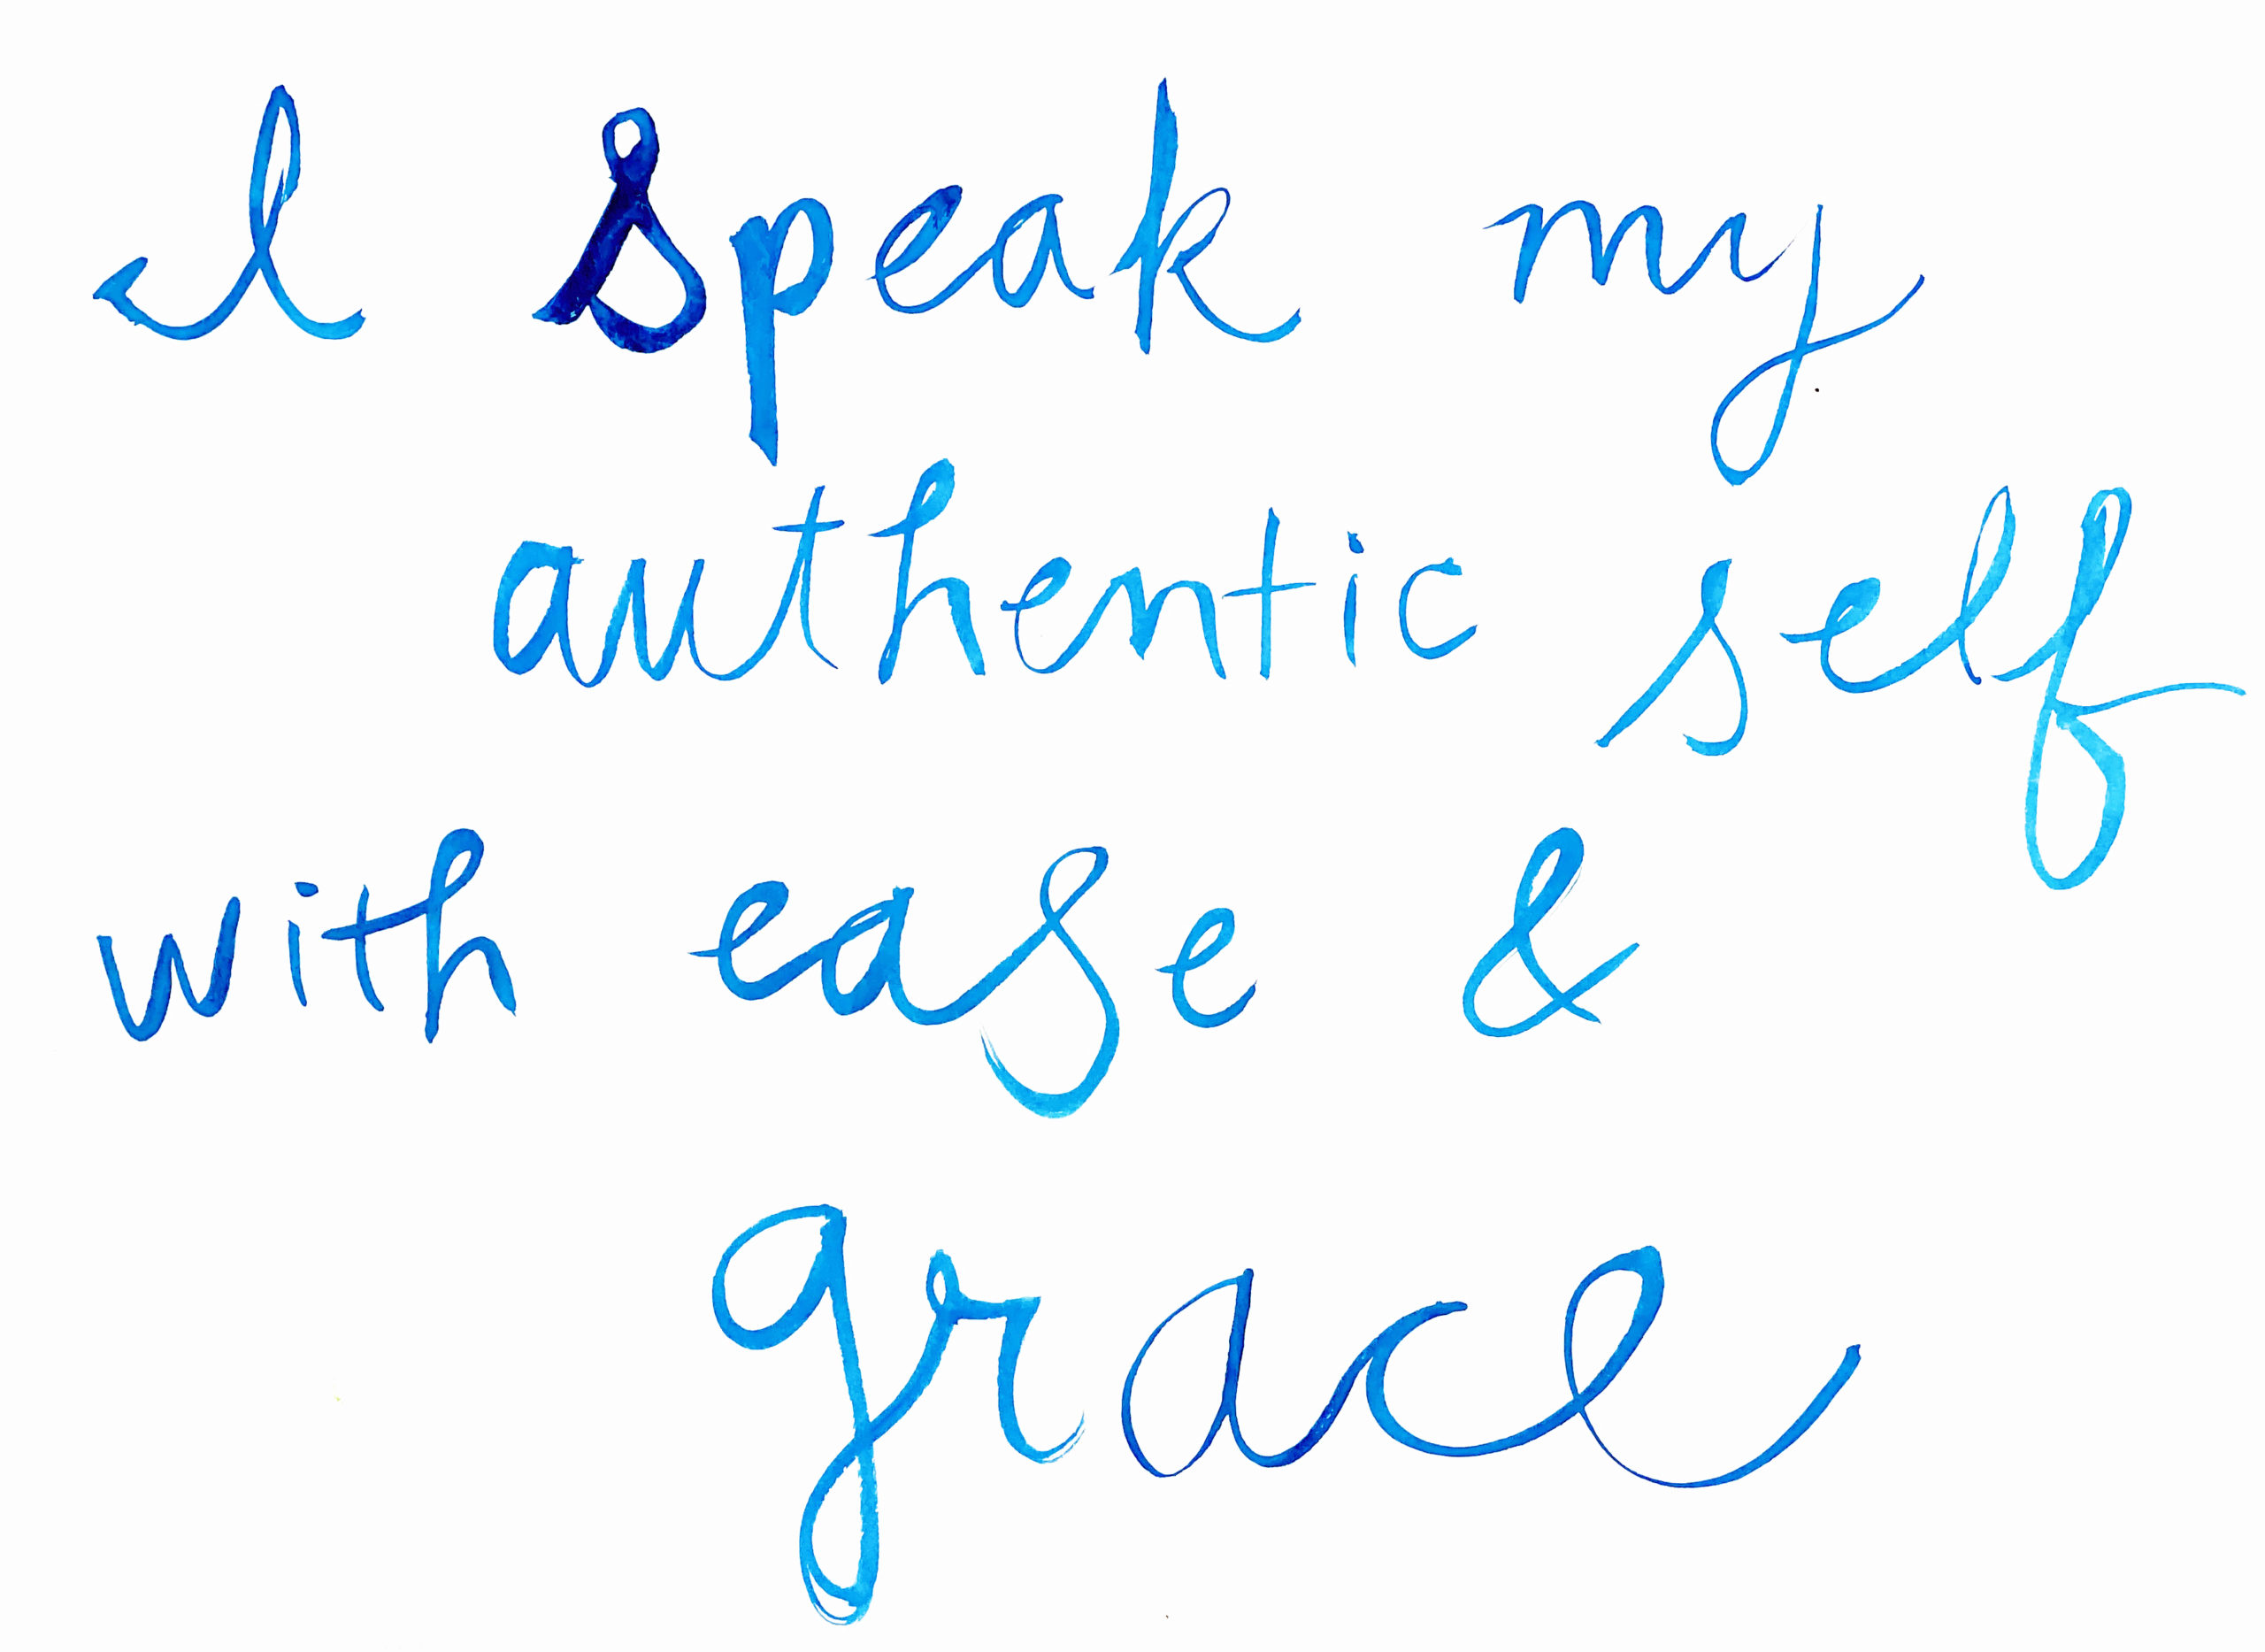 I speak my
authentic self
with ease &
grace